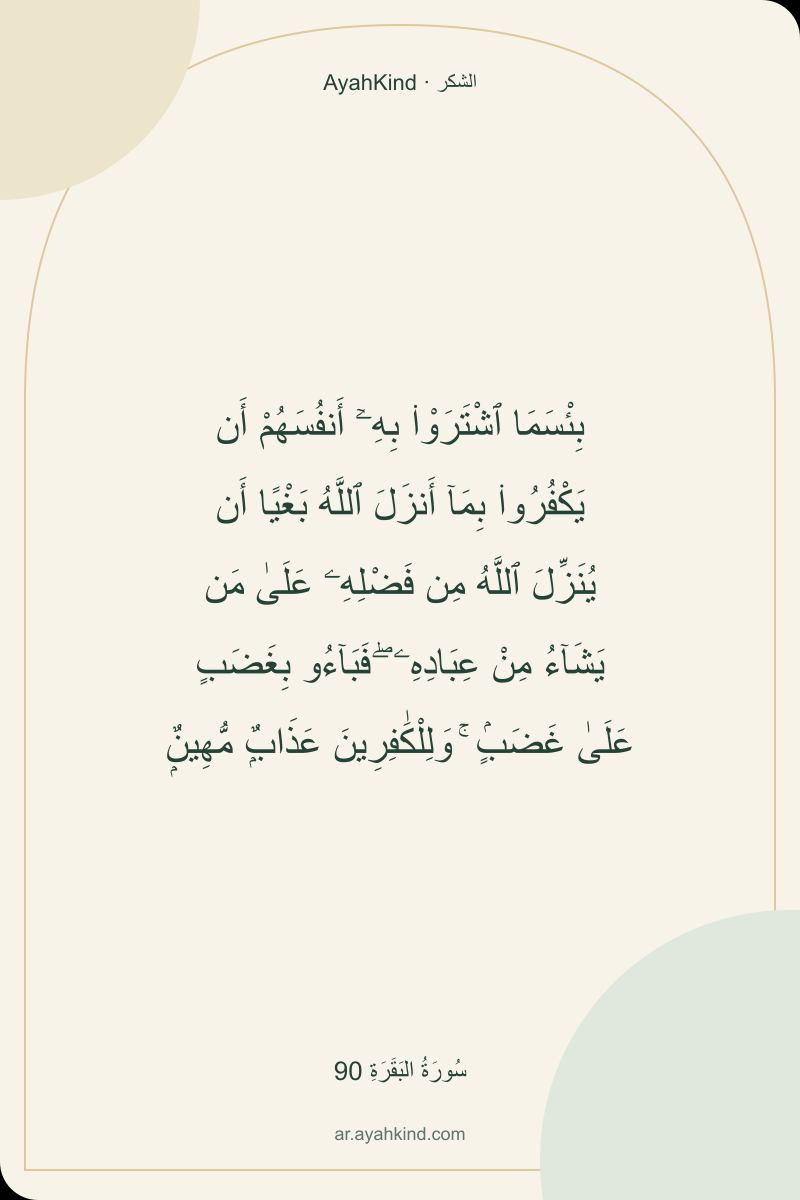 AyahKind · الشكر
بِئْسَمَا ٱشْتَرَوْا۟ بِهِۦٓ أَنفُسَهُمْ أَن
يَكْفُرُوا۟ بِمَآ أَنزَلَ ٱللَّهُ بَغْيًا أَن
يُنَزِّلَ ٱللَّهُ مِن فَضْلِهِۦ عَلَىٰ مَن
يَشَآءُ مِنْ عِبَادِهِۦ ۖ فَبَآءُو بِغَضَبٍ
عَلَىٰ غَضَبٍۢ ۚ وَلِلْكَٰفِرِينَ عَذَابٌۭ مُّهِينٌۭ
سُورَةُ البَقَرَةِ 90
ar.ayahkind.com